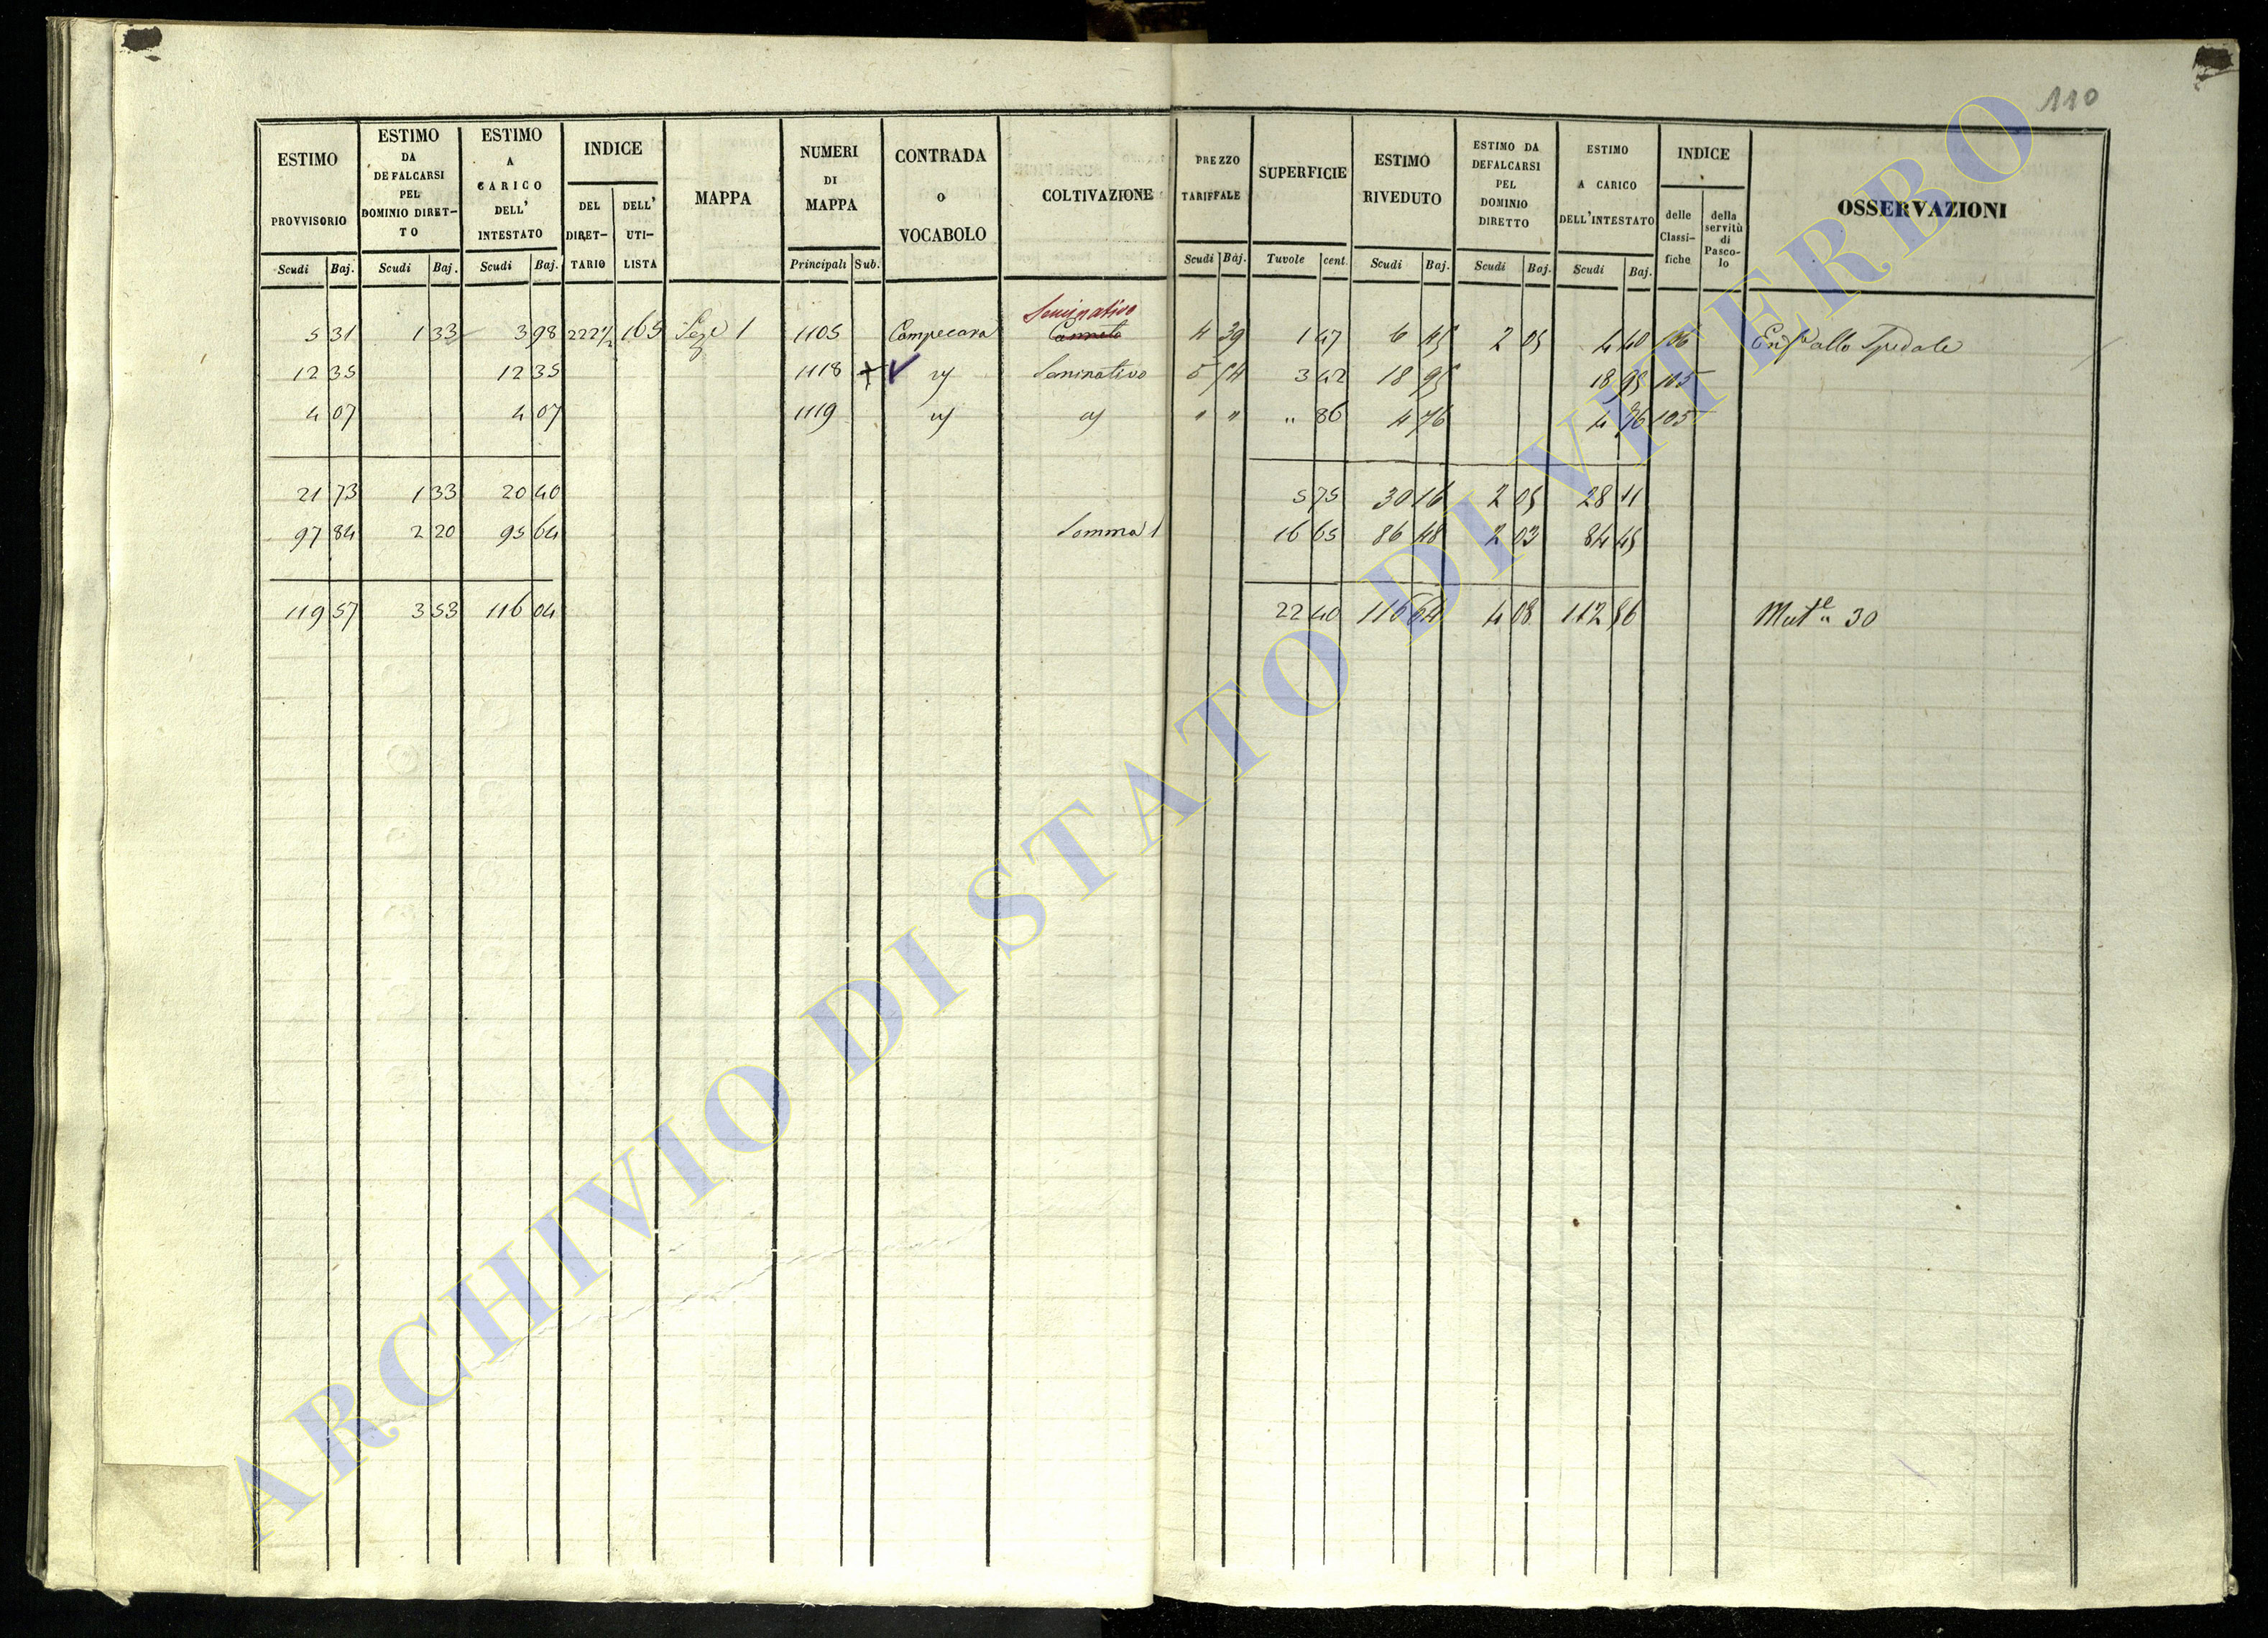 110
ESTIMO PROVVISORIO Scudi Baj.
ESTIMO DA DEFALCARSI PEL DOMINIO DIRET- TO Scudi Baj.
ESTIMO A CARICO DELL' INTESTATO Scudi Baj.
INDICE DEL DIRET- TARIO DELL' UTI- LISTA
MAPPA
NUMERI DI MAPPA Principali Sub.
CONTRADA o VOCABOLO
COLTIVAZIONE
PREZZO TARIFFALE Scudi Baj.
SUPERFICIE Tavole cent.
ESTIMO RIVEDUTO Scudi Baj.
ESTIMO DA DEFALCARSI PEL DOMINIO DIRETTO Scudi Baj.
ESTIMO A CARICO DELL'INTESTATO Scudi Baj.
INDICE delle Classi- fiche della servitù di Pasco- lo
OSSERVAZIONI
Seminativo
5 31 1 33 3 98 222 1/2 165 1 1105 Campecara Canneto 4 39 1 47 6 45 2 05 4 40 106 allo Spedale
12 35 12 35 1118 + Seminativo 5 54 3 42 18 95 18 95 105
4 07 4 07 1119 " " " 86 4 76 4 76 105
21 73 1 33 20 40 5 75 30 16 2 05 28 11
97 84 2 20 95 64 Somma 16 65 86 48 2 03 84 45
119 57 3 53 116 04 22 40 116 64 4 08 112 56 Mut.e " 30
ARCHIVIO DI STATO DI VITERBO